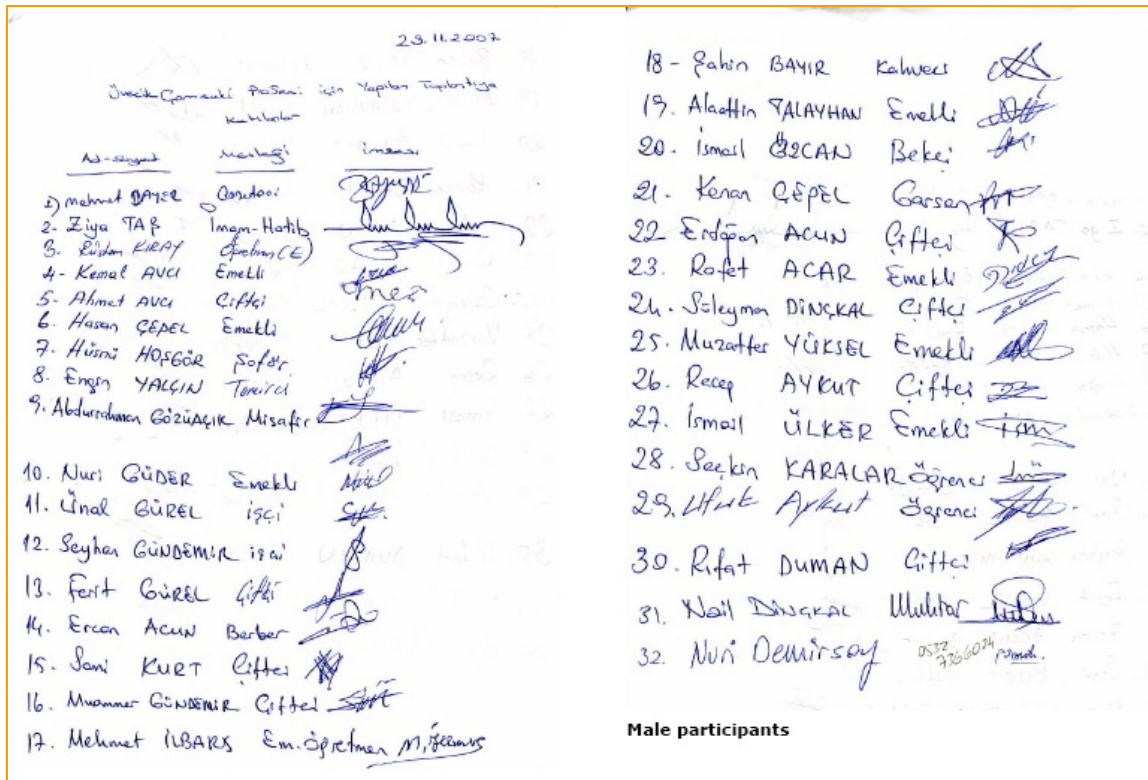 29.11.2007
İvecik Çamseki Projesi için Yapılan Toplantıya
Katılanlar
Ad-soyad Mesleği imzası
1) Mehmet BAYER
2- Ziya TAŞ Imam-Hatib
3. KIRAY Öğretmen(E)
4- Kemal AVCI Emekli
5- Ahmet AVCI Çiftçi
6- Hasan ÇEPEL Emekli
7. Hüsnü HOŞGÖR Şoför
8. Engin YALÇIN Tamirci
9. Abdurrahman GÖZÜAÇIK Misafir
10. Nuri GÜDER Emekli
11. Ünal GÜREL işçi
12. Seyhan GÜNDEMİR işçi
13. Ferit GÜREL Çiftçi
14. Ercan ACUN Berber
15. Sami KURT Çiftçi
16. Muammer GÜNDEMİR Çiftçi
17. Mehmet İLBARS Em. Öğretmen
18- Şahin BAYIR Kahveci
19. Alaettin TALAYHAN Emekli
20. İsmail ÖZCAN Bekçi
21. Kenan ÇEPEL Garson
22. Erdoğan ACUN Çiftçi
23. Rafet ACAR Emekli
24. Süleyman DİNÇKAL Çiftçi
25. Muzaffer YÜKSEL Emekli
26. Recep AYKUT Çiftçi
27. İsmail ÜLKER Emekli
28. Seçkin KARALAR Öğrenci
29. Ufuk Aykut Öğrenci
30. Rıfat DUMAN Çiftçi
31. Nail DİNÇKAL Muhtar
32. Nuri Demirsoy 0532 7366024
Male participants